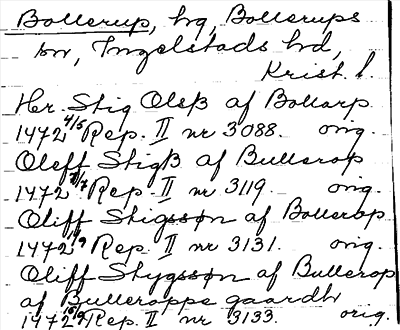 Bollerup, hg, Bollerups
sn, Ingelstads hd,
Krist. l.
Her. Stig Olsß af Bollarp.
1472 4/5 Rep. II nr 3088. orig.
Oleff Stigß af Bullerop
1472 Rep. II nr 3119. orig.
Oliff Stigssøn af Bollerop
1472 Rep. II nr 3131. orig.
Oliff Stygssøn af Bullerop
af Bulleroppe gaardh
1472 Rep. II nr 3133. orig.